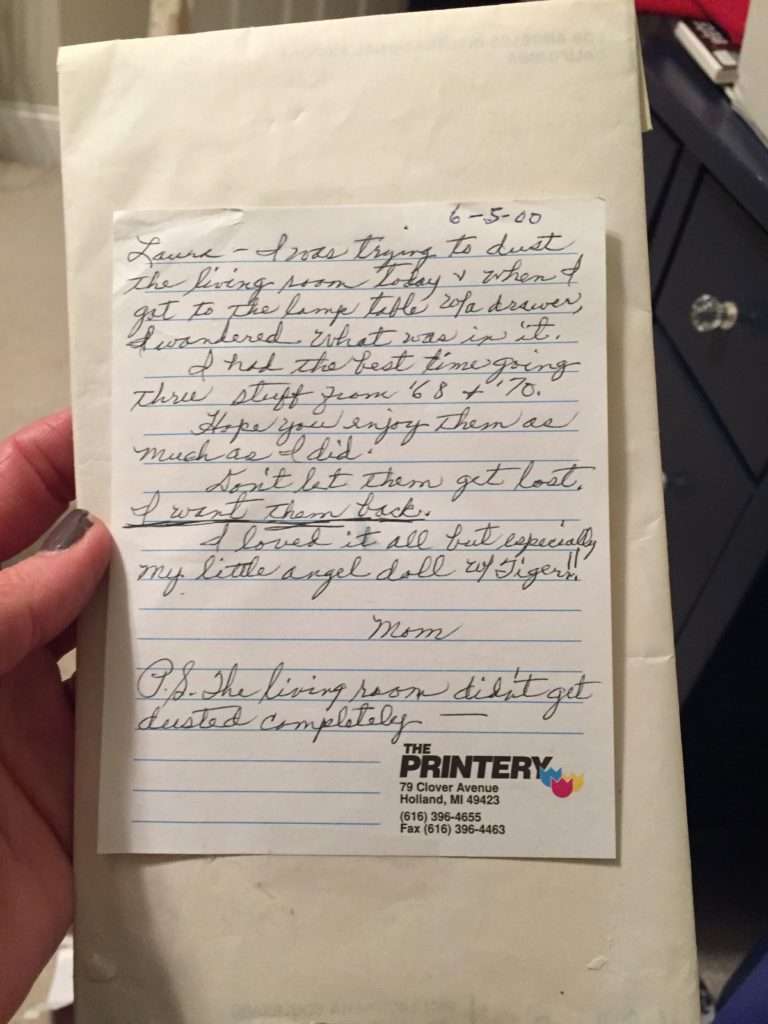 LOS ANGELES INTERNATIONAL AIRPORT
CALIFORNIA
6-5-00
Laura - I was trying to dust
the living room today & when I
got to the lamp table w/a drawer,
I wandered what was in it.
I had the best time going
three stuff from '68 + '70.
Hope you enjoy them as
much as I did.
Don't let them get lost.
I want them back.
I loved it all but especially
my little angel doll w/ Tiger!!
Mom
P.S. The living room didn't get
dusted completely —
THE
PRINTERY
79 Clover Avenue
Holland, MI 49423
(616) 396-4655
Fax (616) 396-4463